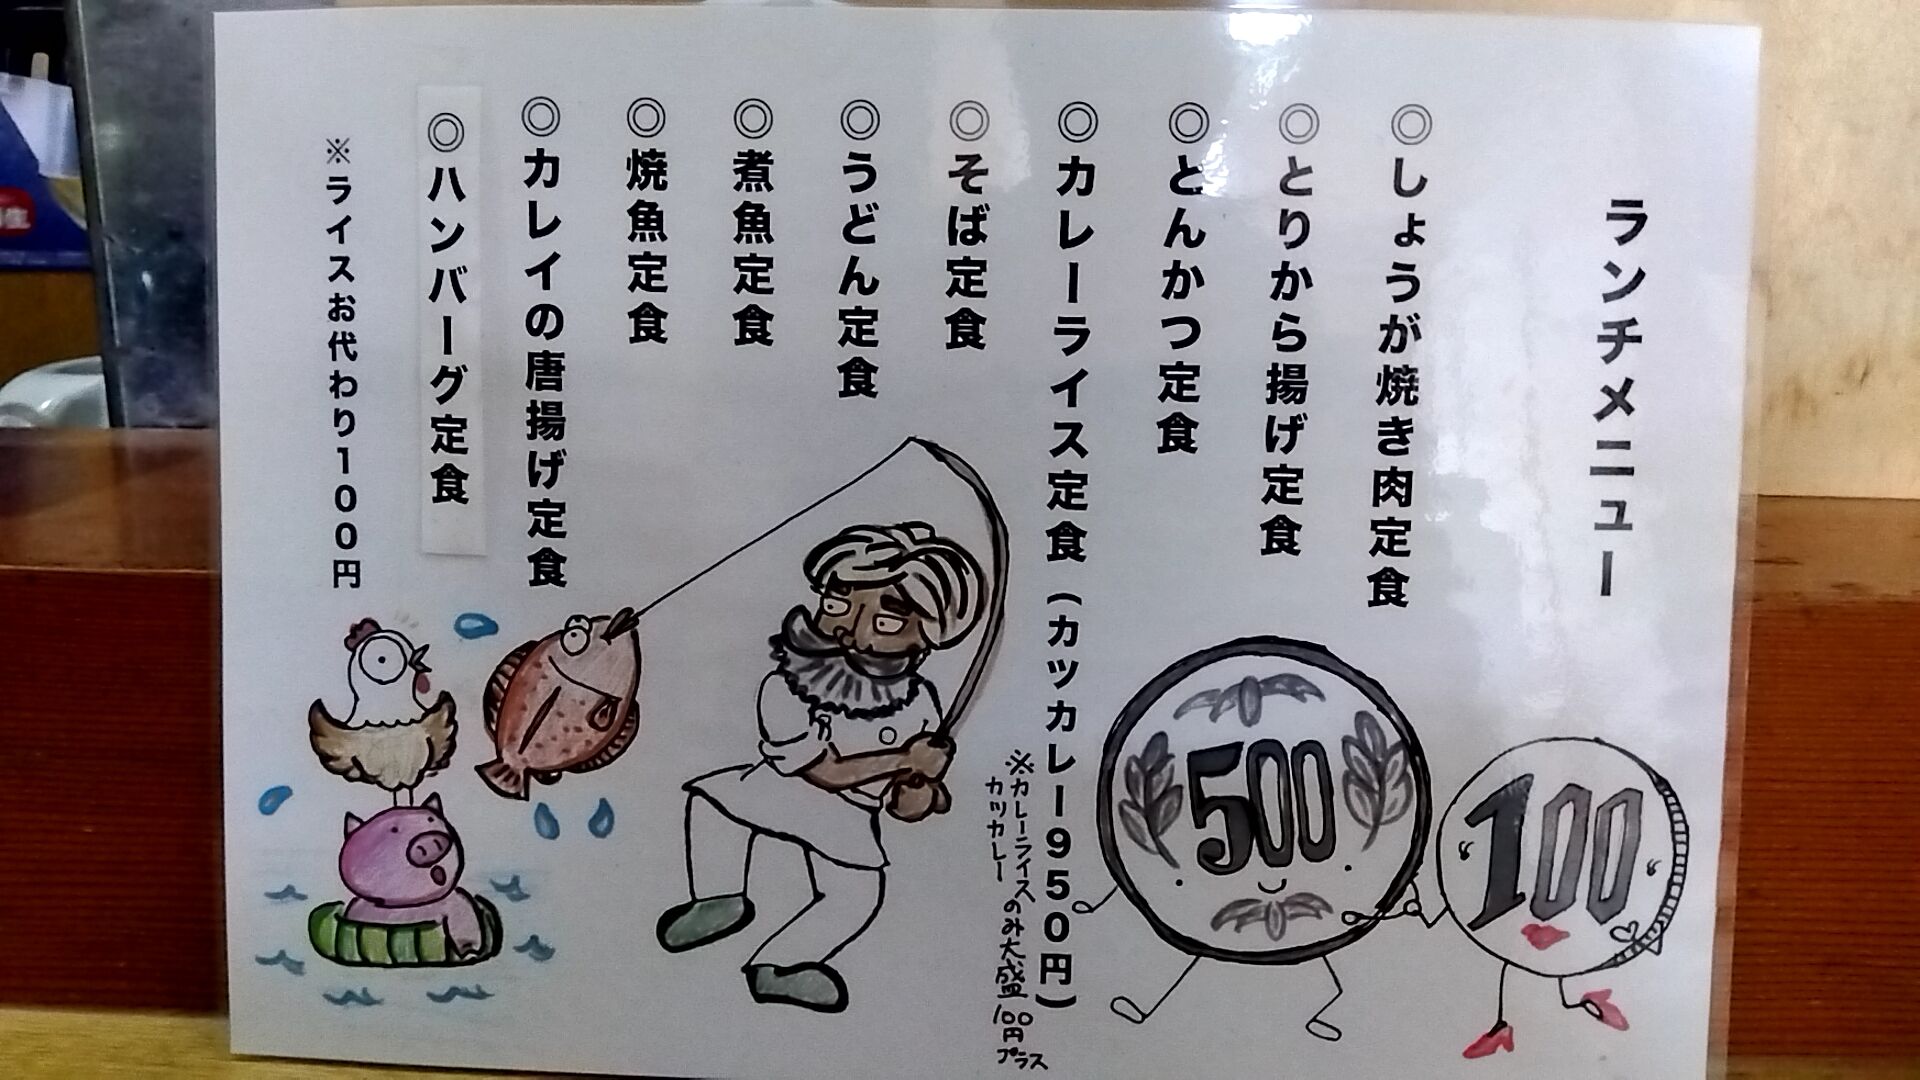 ランチメニュー
◎しょうが焼き肉定食
◎とりから揚げ定食
◎とんかつ定食
◎カレーライス定食（カツカレー950円）
※カレーライスのみ大盛100円プラス
カツカレー
◎そば定食
◎うどん定食
◎煮魚定食
◎焼魚定食
◎カレイの唐揚げ定食
◎ハンバーグ定食
※ライスお代わり100円
500
100